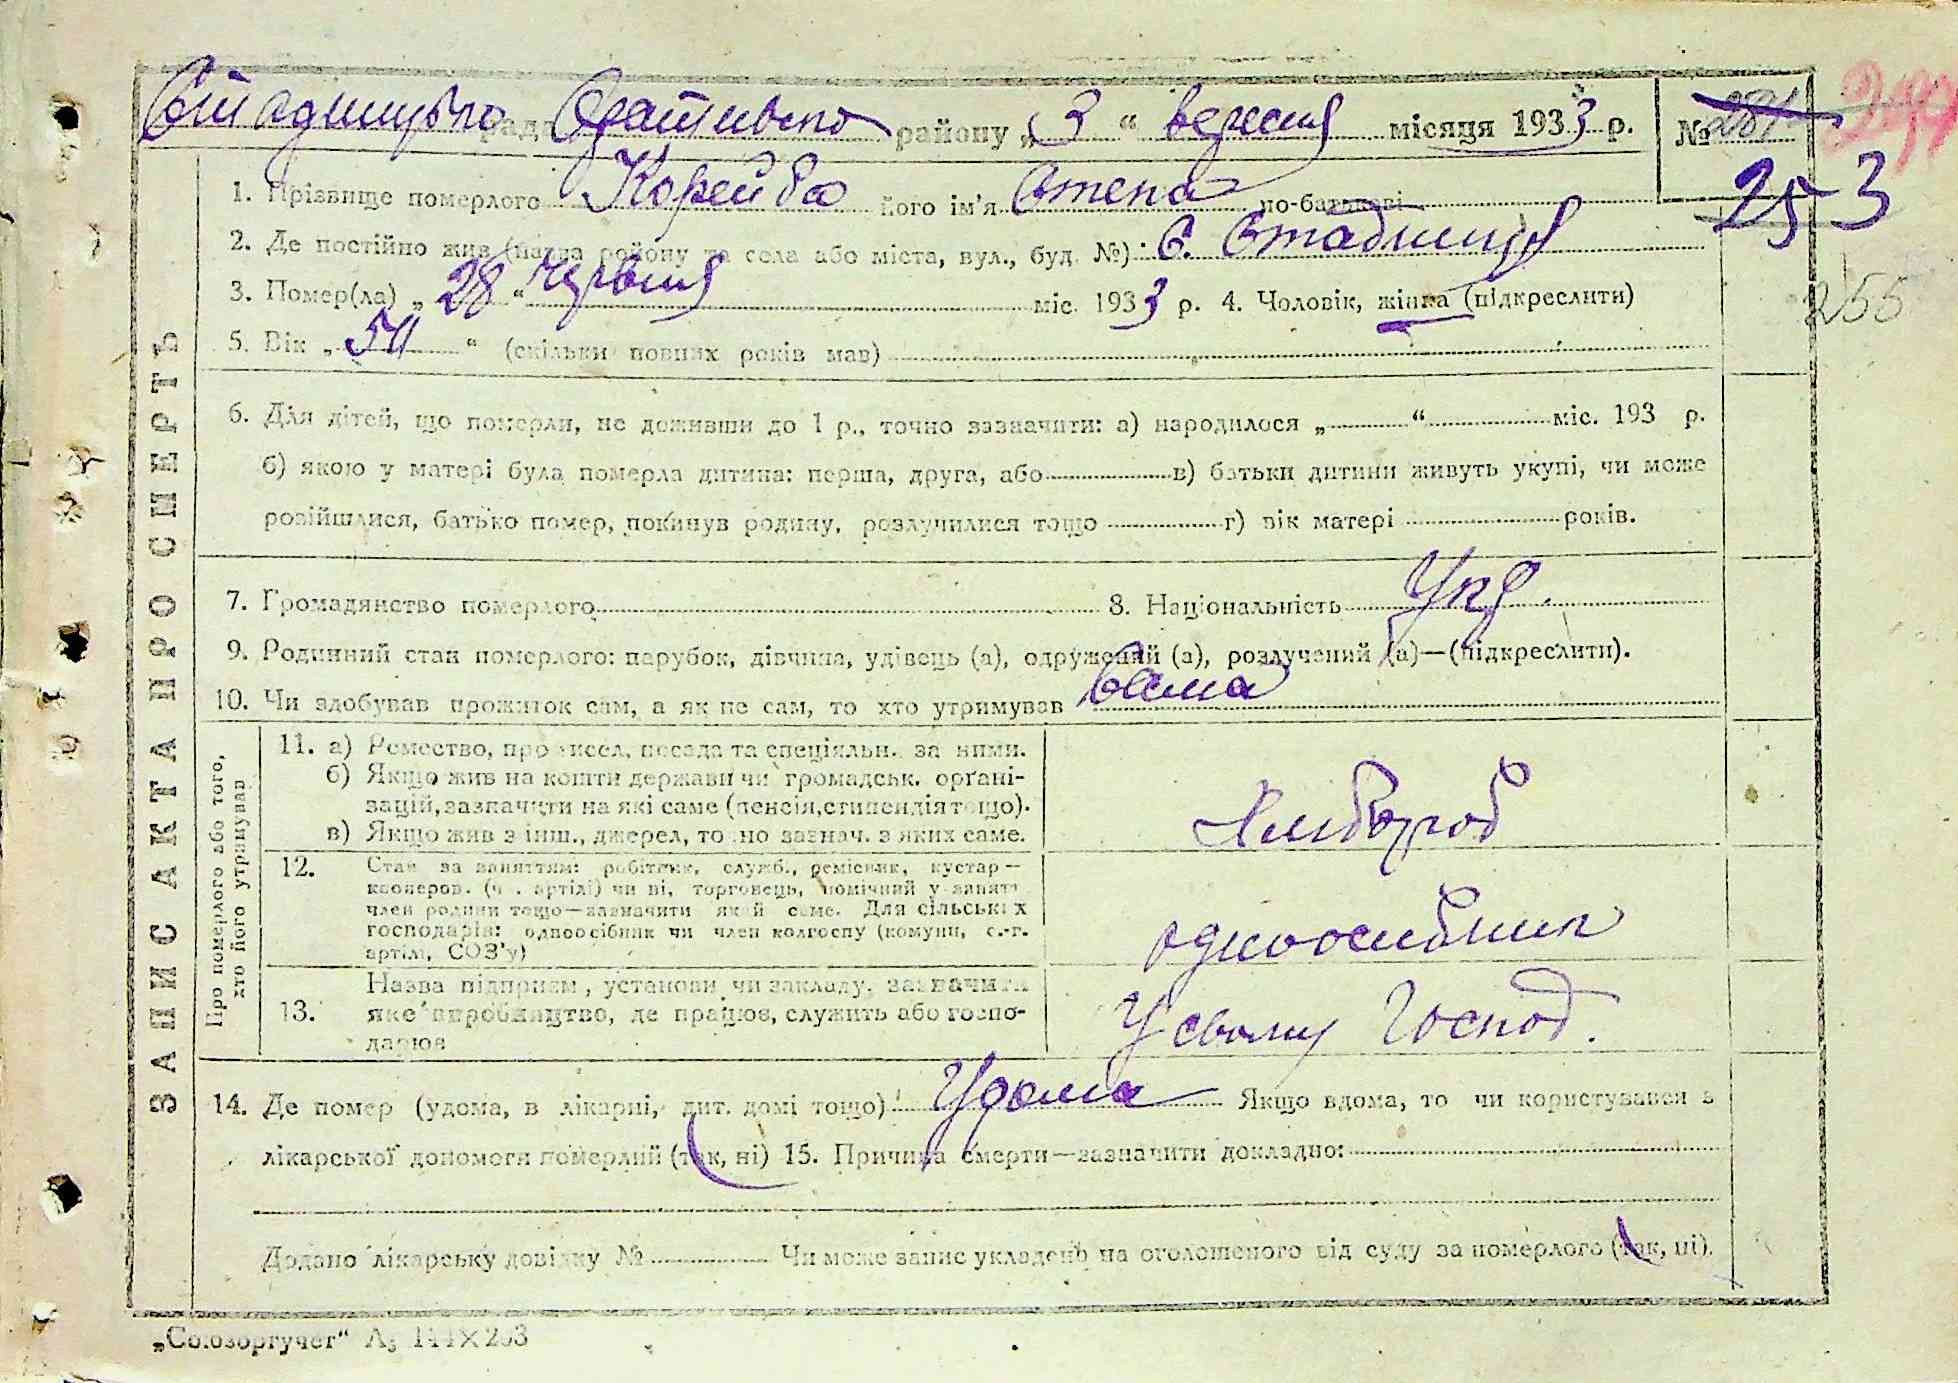 рада Оратівсько району „ 3 “ вересня місяця 1933 р. № 281
253
1. Прізвище померлого Корейба його ім'я Степа по-батькові
2. Де постійно жив (назва району та села або міста, вул., буд. №) С. Стадниця
3. Помер(ла) „ 28 “ червня міс. 1933 р. 4. Чоловік, жінка (підкреслити)
255
5. Вік „ 54 “ (скільки повних років мав)
6. Для дітей, що померли, не доживши до 1 р., точно зазначити: а) народилося „ “ міс. 193 р.
б) якою у матері була померла дитина: перша, друга, або в) батьки дитини живуть укупі, чи може
розійшлися, батько помер, покинув родину, розлучилися тощо г) вік матері років.
7. Громадянство померлого 8. Національність Укр.
9. Родинний стан померлого: парубок, дівчина, удівець (а), одружений (а), розлучений (а)—(підкреслити).
10. Чи здобував прожиток сам, а як не сам, то хто утримував Сама
ЗАПИС АКТА ПРО СМЕРТЬ
Про померлого або того,
хто його утримував
11. а) Ремество, професл, посада та спеціяльн. за ними.
б) Якщо жив на кошти держави чи громадськ. орґані-
зацій, зазначити на які саме (пенсія, стипендія тощо).
в) Якщо жив з інш., джерел, точно зазнач. з яких саме.
Хлібороб
12. Стан за заняттям: робітник, служб., ремісник, кустар—
кооперов. (ч. артілі) чи ні, торговець, помічний у занятт
член родини тощо—зазначити який саме. Для сільських
господарів: одноосібник чи член колгоспу (комуни, с.-г.
артілі, СОЗ'у)
одноосибник
13. Назва підприєм., установи чи закладу, зазначити
яке виробництво, де працює, служить або госпо-
дарює
У своему Господ.
14. Де помер (удома, в лікарні, дит. домі тощо) Удома Якщо вдома, то чи користувався з
лікарської допомоги померлий (так, ні) 15. Причина смерти—зазначити докладно:
Додано лікарську довідку № Чи може запис укладено на оголошеного від суду за померлого (так, ні).
„Союзоргучет“ А5 144×203